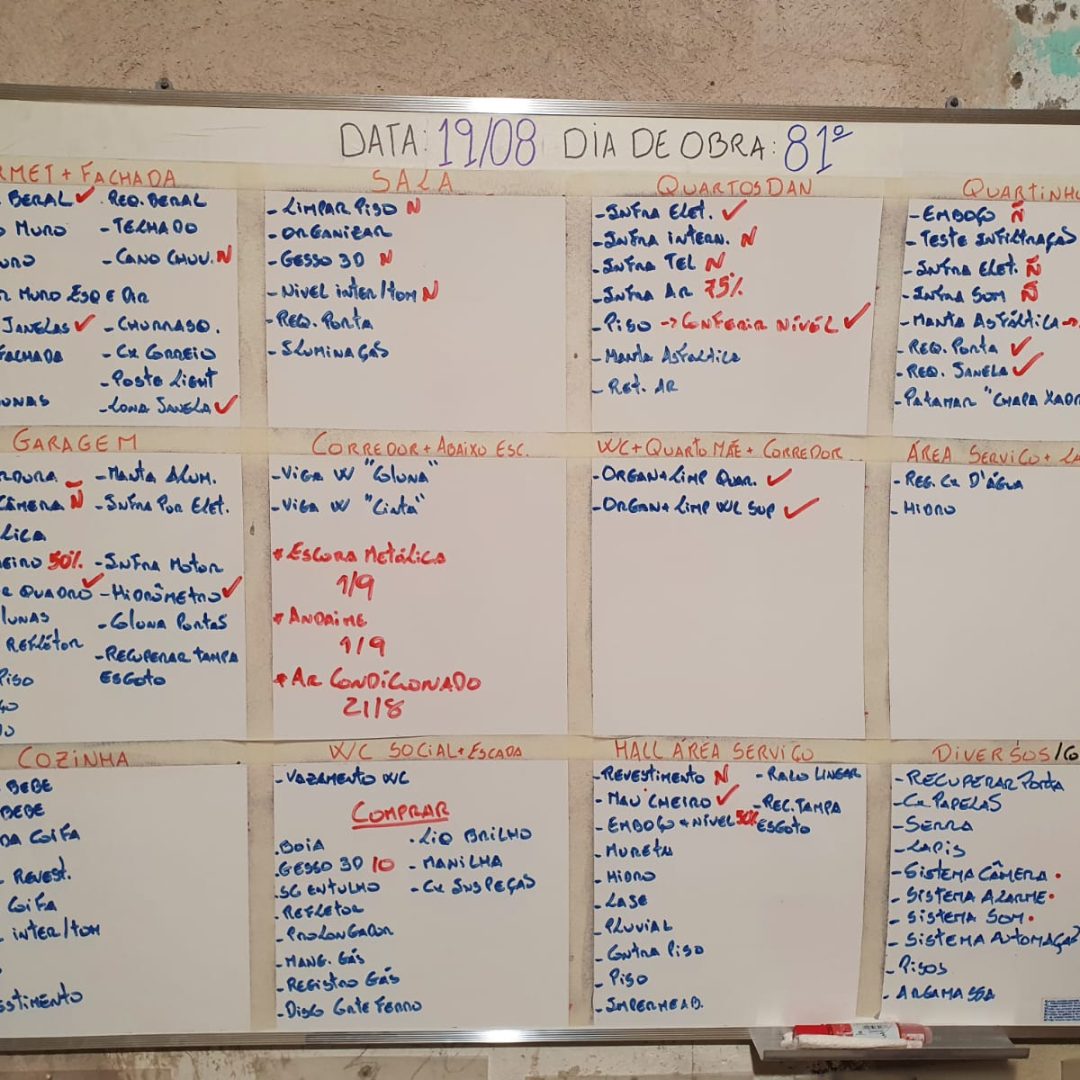 DATA: 19/08 DIA DE OBRA: 81º
RMET + FACHADA
BERAL ✓
O MURO
URO
R MURO ESQ E DIR
JANELAS ✓
FACHADA
UNAS
- REQ. BERAL
- TELHADO
- CANO CHUV. N
- CHURRASQ.
- CX CORREIO
- POSTE LIGHT
- LONA JANELA ✓
SALA
- LIMPAR PISO N
- ORGANIZAR
- GESSO 3D N
- NIVEL INTER/TOM N
- REQ. PORTA
- ILUMINAÇÃO
QUARTOS DAN
- INFRA ELET. ✓
- INFRA INTERN. N
- INFRA TEL N
- INFRA AR 75%
- PISO → CONFERIR NÍVEL ✓
- MANTA ASFÁLTICA
- RET. AR
QUARTINHO
- EMBOÇO Ñ
- TESTE INFILTRAÇÃO
- INFRA ELET. Ñ
- INFRA SOM Ñ
- MANTA ASFÁLTICA →
- REQ. PORTA ✓
- REQ. JANELA ✓
- PATAMAR "CHAPA XADR
GARAGEM
DURA
CÂMERA Ñ
LICA
EIRO 50%
R QUADRO ✓
LUNAS
REFLETOR
PISO
ÇO
O
- MANTA ALUM.
- INFRA POR ELET.
- INFRA MOTOR
- HIDRÔMETRO ✓
- COLUNA PORTAS
- RECUPERAR TAMPA
ESGOTO
CORREDOR + ABAIXO ESC.
- VIGA W "COLUNA"
- VIGA W "CINTA"
* ESCORA METÁLICA
1/9
* ANDAIME
1/9
* AR CONDICIONADO
21/8
WC + QUARTO MÃE + CORREDOR
- ORGAN + LIMP QUAR. ✓
- ORGAN + LIMP WC SUP ✓
ÁREA SERVIÇO + LA
- REG. CX D'ÁGUA
- HIDRO
COZINHA
BEBE
BEBE
DA COIFA
REVEST.
COIFA
INTER/TOM
ESTIMENTO
W/C SOCIAL + ESCADA
- VAZAMENTO WC
COMPRAR
. BOIA
. GESSO 3D 10
. SC ENTULHO
- REFLETOR
- PROLONGADOR
- MANG. GÁS
- REGISTRO GÁS
- DISCO CORTE FERRO
. LIQ BRILHO
- MANILHA
- CX SUSPEÇÃO
HALL ÁREA SERVIÇO
- REVESTIMENTO N
- MAU CHEIRO ✓
- EMBOÇO + NÍVEL 50%
- MURETA
- HIDRO
- LASE
- PLUVIAL
- CONTRA PISO
- PISO
- IMPERMEAB.
- RALO LINEAR
- REC. TAMPA
ESGOTO
DIVERSOS/CO
- RECUPERAR PORTA
- CX PAPELÃO
- SERRA
- LÁPIS
- SISTEMA CÂMERA •
- SISTEMA ALARME •
- SISTEMA SOM •
- SISTEMA AUTOMAÇÃO
- PISOS
- ARGAMASSA